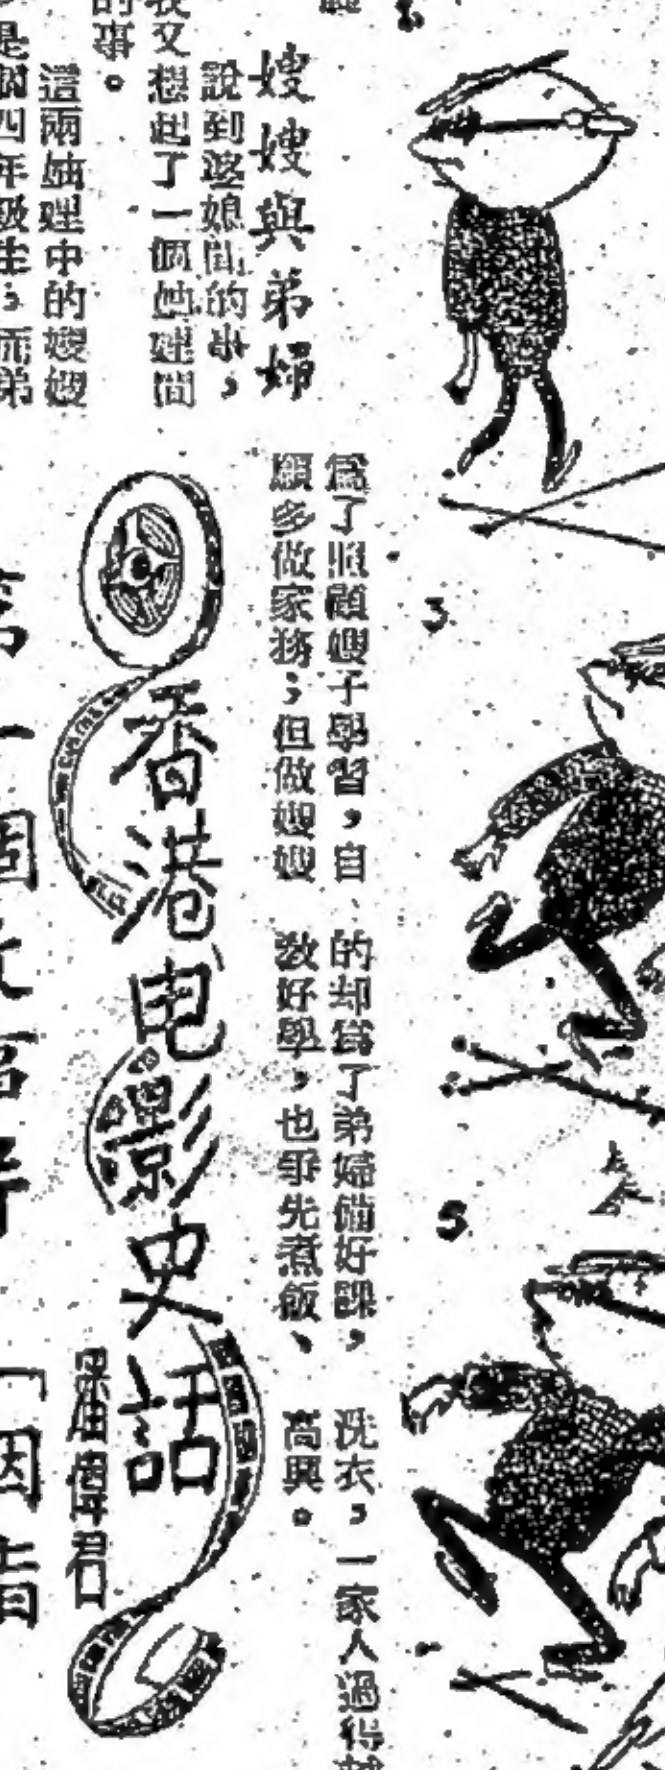 嫂嫂與弟婦
說到婆娘間的事，
我又想起了一個妯娌間
的事。
這兩妯娌中的嫂嫂
是個四年級生，而弟
為了照顧嫂子學習，自
願多做家務；但做嫂嫂
的却為了弟婦備好課，
教好學，也爭先煮飯、
洗衣，一家人過得
高興。
香港电影史話
偉君
第一個
3
5